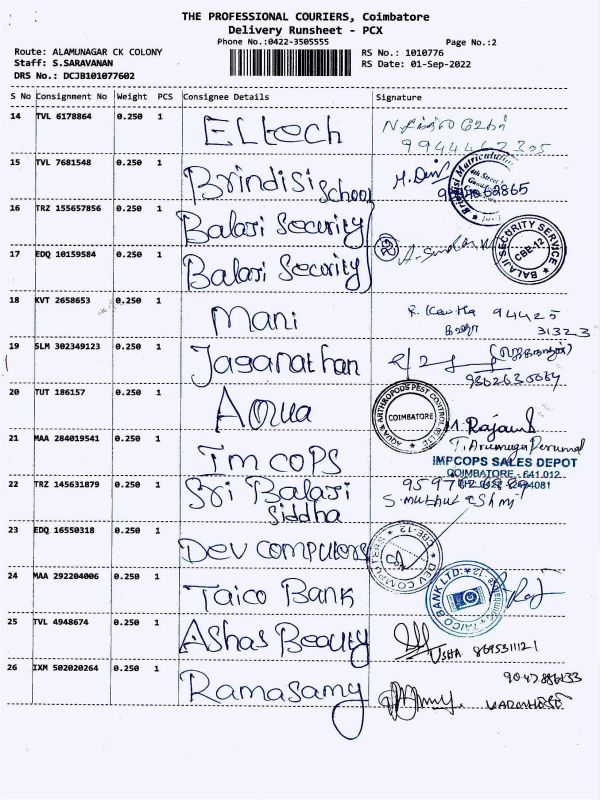 THE PROFESSIONAL COURIERS, Coimbatore
Delivery Runsheet - PCX
Phone No.:0422-3505555 Page No.:2
Route: ALAMUNAGAR CK COLONY RS No.: 1010776
Staff: S.SARAVANAN RS Date: 01-Sep-2022
DRS No.: DCJB101077602
S No Consignment No Weight PCS Consignee Details Signature
14 TVL 6178864 0.250 1 ELtech
15 TVL 7681548 0.250 1 Brindisi School M. Devi
16 TRZ 155657856 0.250 1 Balaji Security
BALAJI SECURITY SERVICE CBE-12
17 EDQ 10159584 0.250 1 Balaji Security
18 KVT 2658653 0.250 1 Mani R. Kavitha 94425
31323
19 SLM 302349123 0.250 1 Jaganathan
20 TUT 186157 0.250 1 Aqua
AQUA & ARTHROPODS PEST CONTROL COIMBATORE
M. Rajam
21 MAA 284019541 0.250 1 Imcops T. Arumuga Perumal
IMPCOPS SALES DEPOT
COIMBATORE - 641 012
22 TRZ 145631879 0.250 1 Sri Balaji
Siddha
23 EDQ 16550318 0.250 1 Dev computers
DEV COMPUTERS CBE-12
24 MAA 292204006 0.250 1 Taico Bank
TAICO BANK LTD. Raj
25 TVL 4948674 0.250 1 Ashas Beauty
USHA 8695311121
26 IXM 502020264 0.250 1 Ramasamy